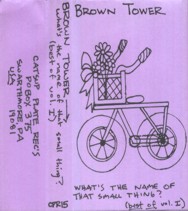 BROWN TOWER
WHAT'S THE NAME OF
THAT SMALL THING?
(best of vol. I)
BROWN TOWER
what's the name of that small thing?
(best of vol. I)
CATSUP PLATE REC'S
PO BOX 375
SWARTHMORE, PA
19081
USA
CPR15